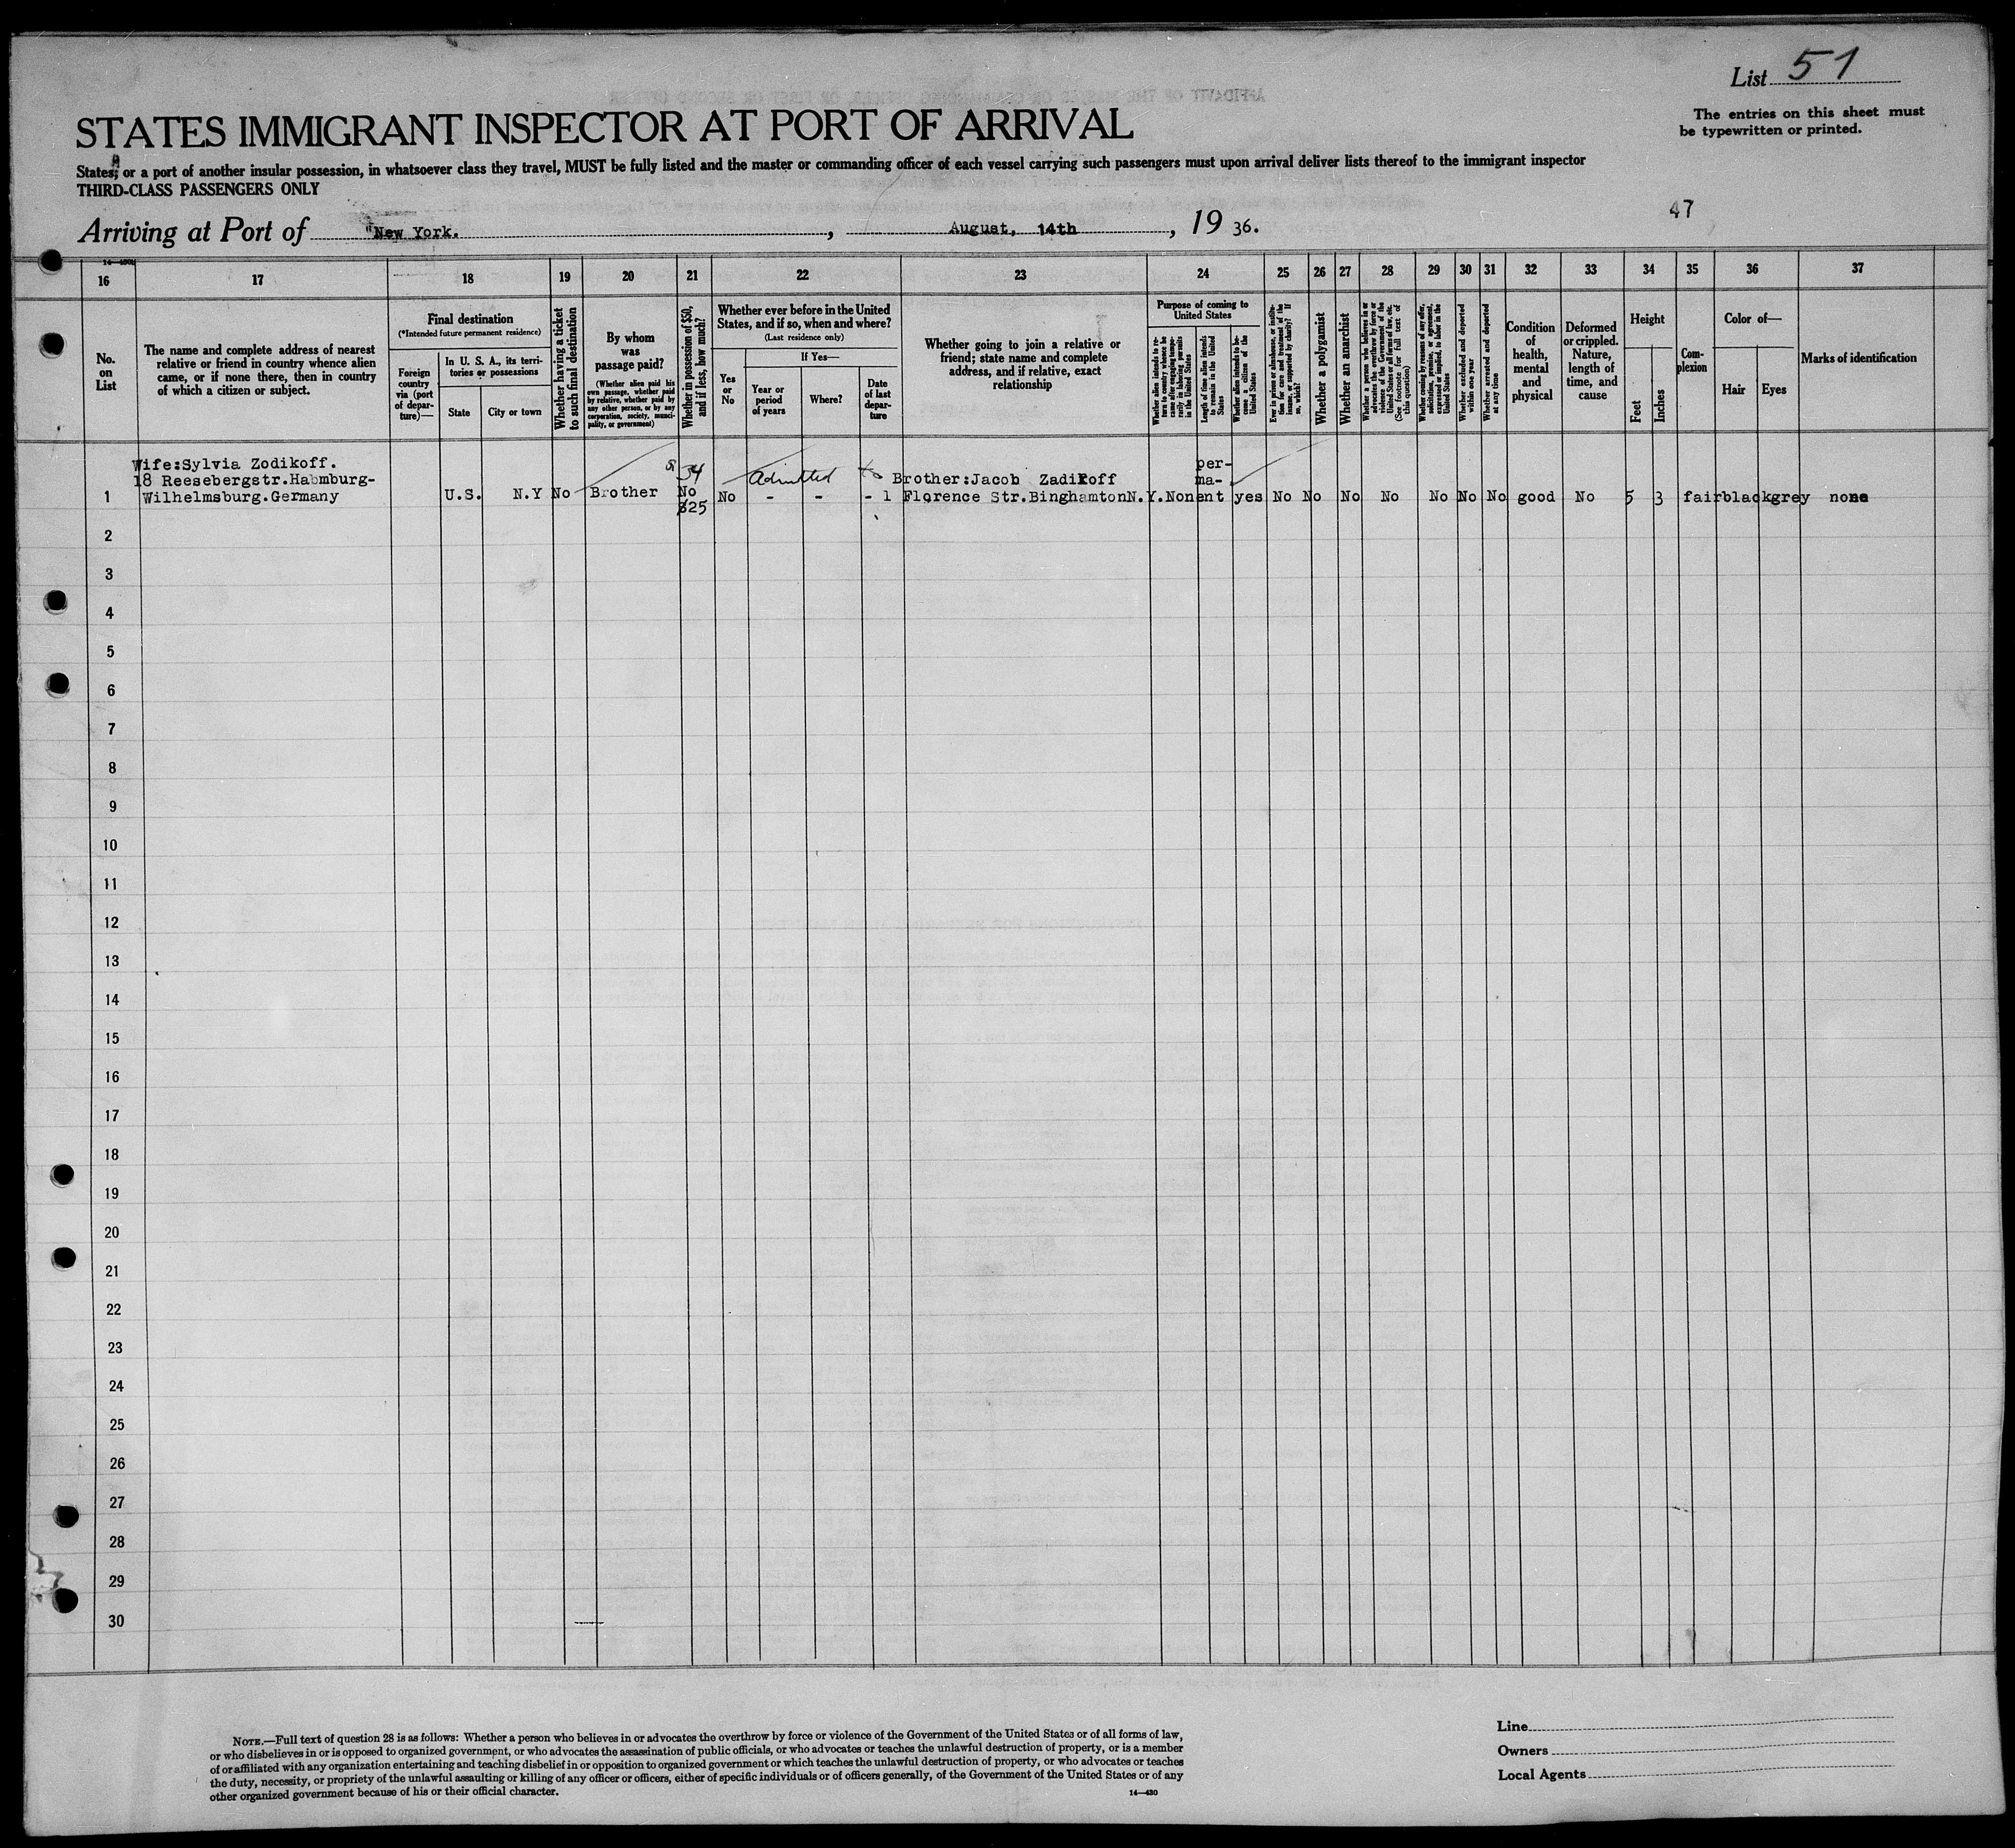 List 51
The entries on this sheet must
be typewritten or printed.
STATES IMMIGRANT INSPECTOR AT PORT OF ARRIVAL
States, or a port of another insular possession, in whatsoever class they travel, MUST be fully listed and the master or commanding officer of each vessel carrying such passengers must upon arrival deliver lists thereof to the immigrant inspector
THIRD-CLASS PASSENGERS ONLY
47
Arriving at Port of New York. , August, 14th , 19 36.
16 17 18 19 20 21 22 23 24 25 26 27 28 29 30 31 32 33 34 35 36 37
No.
on
List
The name and complete address of nearest
relative or friend in country whence alien
came, or if none there, then in country
of which a citizen or subject.
Final destination
(*Intended future permanent residence)
Foreign
country
via (port
of depar-
ture)—
In U. S. A., its terri-
tories or possessions
State
City or town
Whether having a ticket
to such final destination
By whom
was
passage paid?
(Whether alien paid his
own passage, whether paid
by relative, whether paid by
any other person, or by any
corporation, society, munici-
pality, or government)
Whether in possession of $50,
and if less, how much?
Whether ever before in the United
States, and if so, when and where?
(Last residence only)
Yes
or
No
If Yes—
Year or
period
of years
Where?
Date
of last
depar-
ture
Whether going to join a relative or
friend; state name and complete
address, and if relative, exact
relationship
Purpose of coming to
United States
Whether alien intends to re-
turn to country whence he
came after engaging tempo-
rarily in laboring pursuits
in the United States
Length of time alien intends
to remain in the United
States
Whether alien intends to be-
come a citizen of the
United States
Ever in prison or almshouse, or institu-
tion for care and treatment of the
insane, or supported by charity? If
so, which?
Whether a polygamist
Whether an anarchist
Whether a person who believes in or
advocates the overthrow by force or
violence of the Government of the
United States or all forms of law, etc.
(See footnote for full text of
this question)
Whether coming by reason of any offer,
solicitation, promise, or agreement,
expressed or implied, to labor in the
United States
Whether excluded and deported
within one year
Whether arrested and deported
at any time
Condition
of
health,
mental
and
physical
Deformed
or crippled.
Nature,
length of
time, and
cause
Height
Feet
Inches
Com-
plexion
Color of—
Hair
Eyes
Marks of identification
Wife:Sylvia Zodikoff.
18 Reesebergstr.Habmburg-
1 Wilhelmsburg.Germany U.S. N.Y No Brother
34
No
$25
Admitted to
No - - -
Brother:Jacob Zadikoff
1 Florence Str.BinghamtonN.Y.
No
per-
ma-
nent
yes No No No No No No No good No 5 3 fair black grey none
2
3
4
5
6
7
8
9
10
11
12
13
14
15
16
17
18
19
20
21
22
23
24
25
26
27
28
29
30
NOTE.—Full text of question 28 is as follows: Whether a person who believes in or advocates the overthrow by force or violence of the Government of the United States or of all forms of law,
or who disbelieves in or is opposed to organized government, or who advocates the assassination of public officials, or who advocates or teaches the unlawful destruction of property, or is a member
of or affiliated with any organization entertaining and teaching disbelief in or opposition to organized government or which teaches the unlawful destruction of property, or who advocates or teaches
the duty, necessity, or propriety of the unlawful assaulting or killing of any officer or officers, either of specific individuals or of officers generally, of the Government of the United States or of any
other organized government because of his or their official character.
14—430
Line
Owners
Local Agents